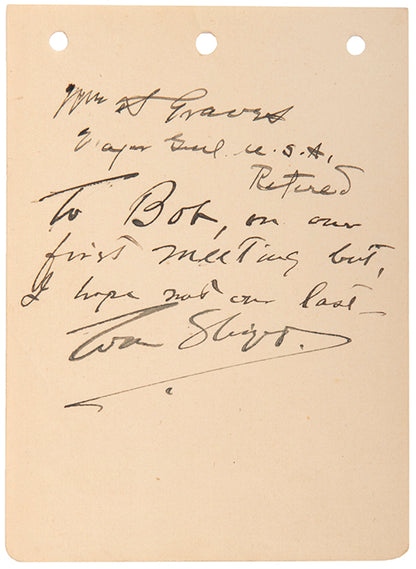 Wm S Graves
Major Genl. U.S.A.,
Retired
To Bob, on our
first meeting but,
I hope not our last –